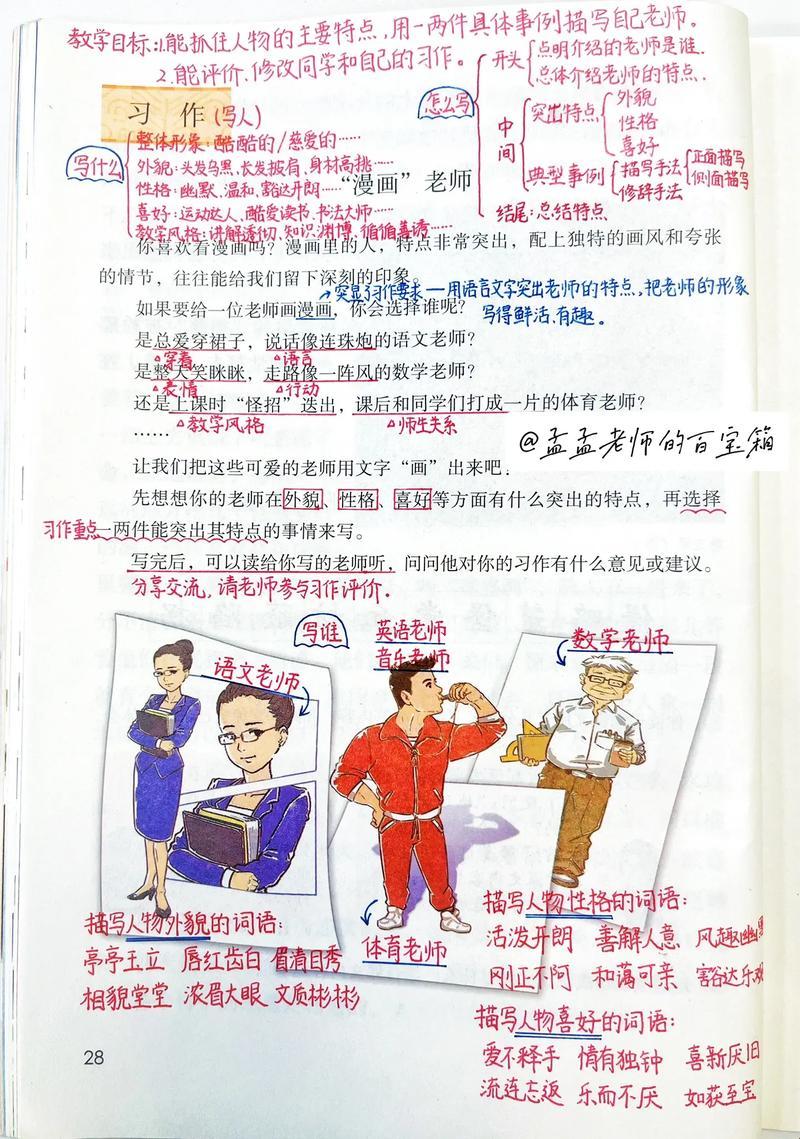 教学目标:1.能抓住人物的主要特点,用一两件具体事例描写自己老师。
2.能评价、修改同学和自己的习作。
怎么写
开头
点明介绍的老师是谁.
总体介绍老师的特点.
中间
突出特点
外貌
性格
喜好
典型事例
描写手法
正面描写
侧面描写
修辞手法
结尾:总结特点
习 作(写人)
写什么
整体形象:酷酷的/慈爱的……
外貌:头发乌黑、长发披肩、身材高挑……
性格:幽默、温和、豁达开朗……
喜好:运动达人、酷爱读书、书法大师……
教学风格:讲解透彻、知识渊博、循循善诱……
“漫画”老师
你喜欢看漫画吗?漫画里的人,特点非常突出,配上独特的画风和夸张
的情节,往往能给我们留下深刻的印象。
突显了习作要求——用语言文字突出老师的特点,把老师的形象
写得鲜活、有趣。
如果要给一位老师画漫画,你会选择谁呢?
是总爱穿裙子,说话像连珠炮的语文老师?
△穿着 △语言
是整天笑眯眯,走路像一阵风的数学老师?
△表情 △行动
还是上课时“怪招”迭出,课后和同学们打成一片的体育老师?
△教学风格 △师生关系
……
@孟孟老师的百宝箱
让我们把这些可爱的老师用文字“画”出来吧.
先想想你的老师在外貌、性格、喜好等方面有什么突出的特点,再选择
习作重点
一两件能突出其特点的事情来写。
写完后,可以读给你写的老师听,问问他对你的习作有什么意见或建议。
分享交流,请老师参与习作评价.
写谁
英语老师
音乐老师
数学老师
语文老师
体育老师
描写人物外貌的词语:
亭亭玉立 唇红齿白 眉清目秀
相貌堂堂 浓眉大眼 文质彬彬
描写人物性格的词语:
活泼开朗 善解人意 风趣幽默
刚正不阿 和蔼可亲 豁达乐观
描写人物喜好的词语:
爱不释手 情有独钟 喜新厌旧
流连忘返 乐而不厌 如获至宝
28